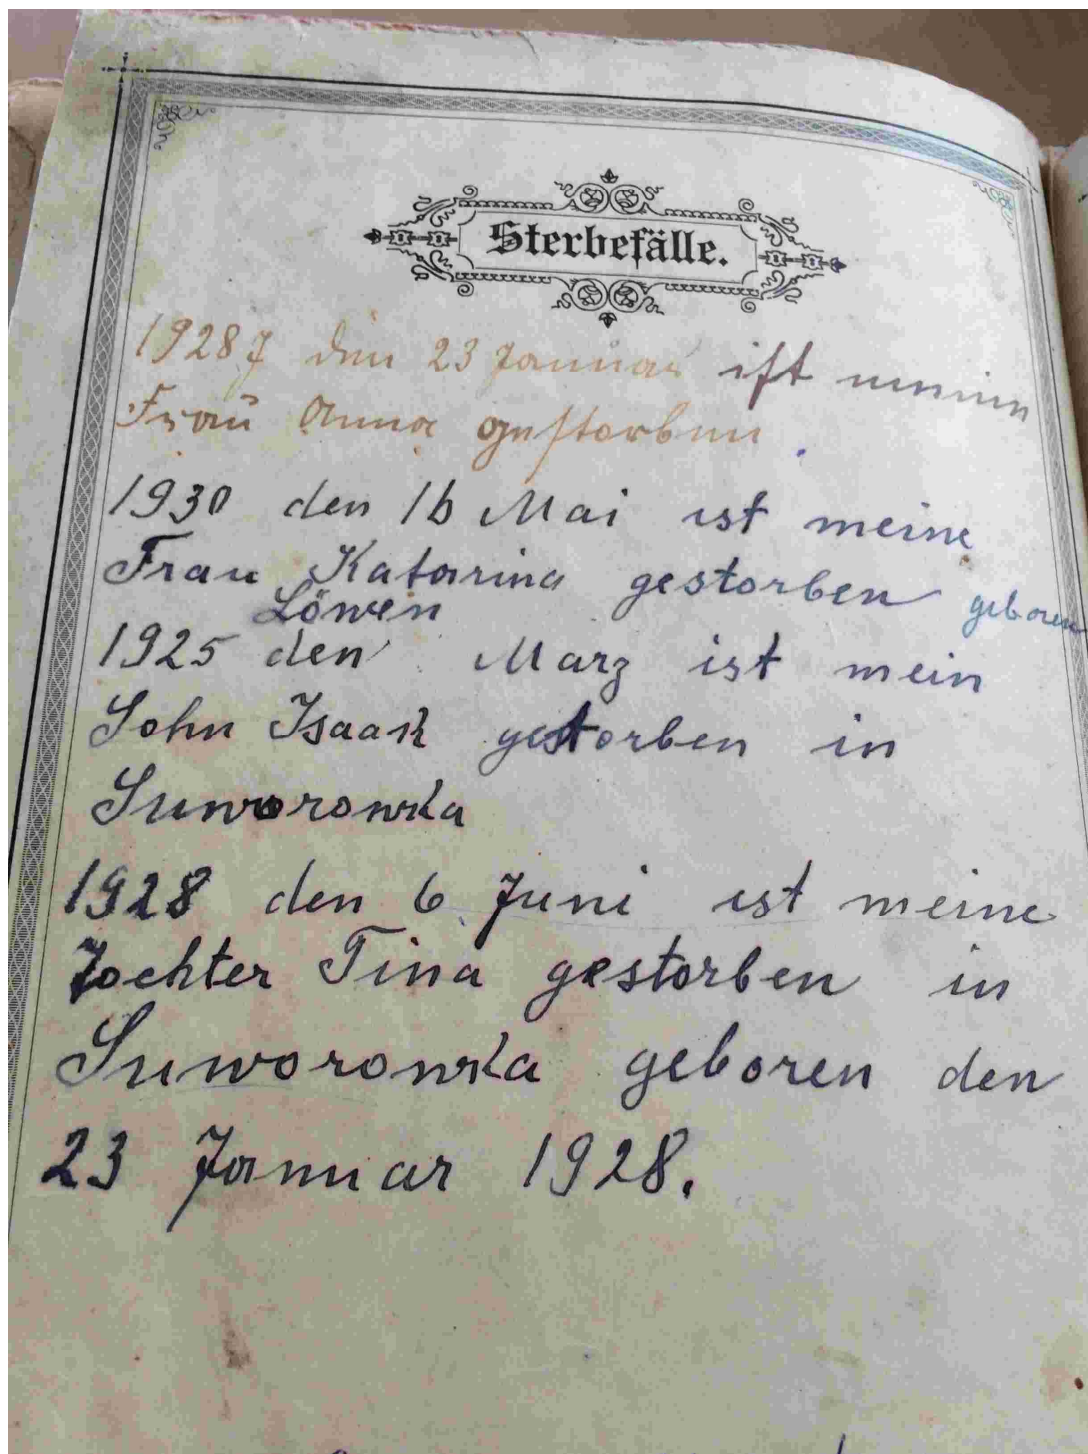 Sterbefälle.
1928 J den 23 Januar ist meine
Frau Anna gestorben
1930 den 16 Mai ist meine
Frau Katarina gestorben geboren
Löwen
1925 den Marz ist mein
Sohn Isaak gestorben in
Suworowka
1928 den 6 Juni ist meine
Tochter Tina gestorben in
Suworowka geboren den
23 Januar 1928.